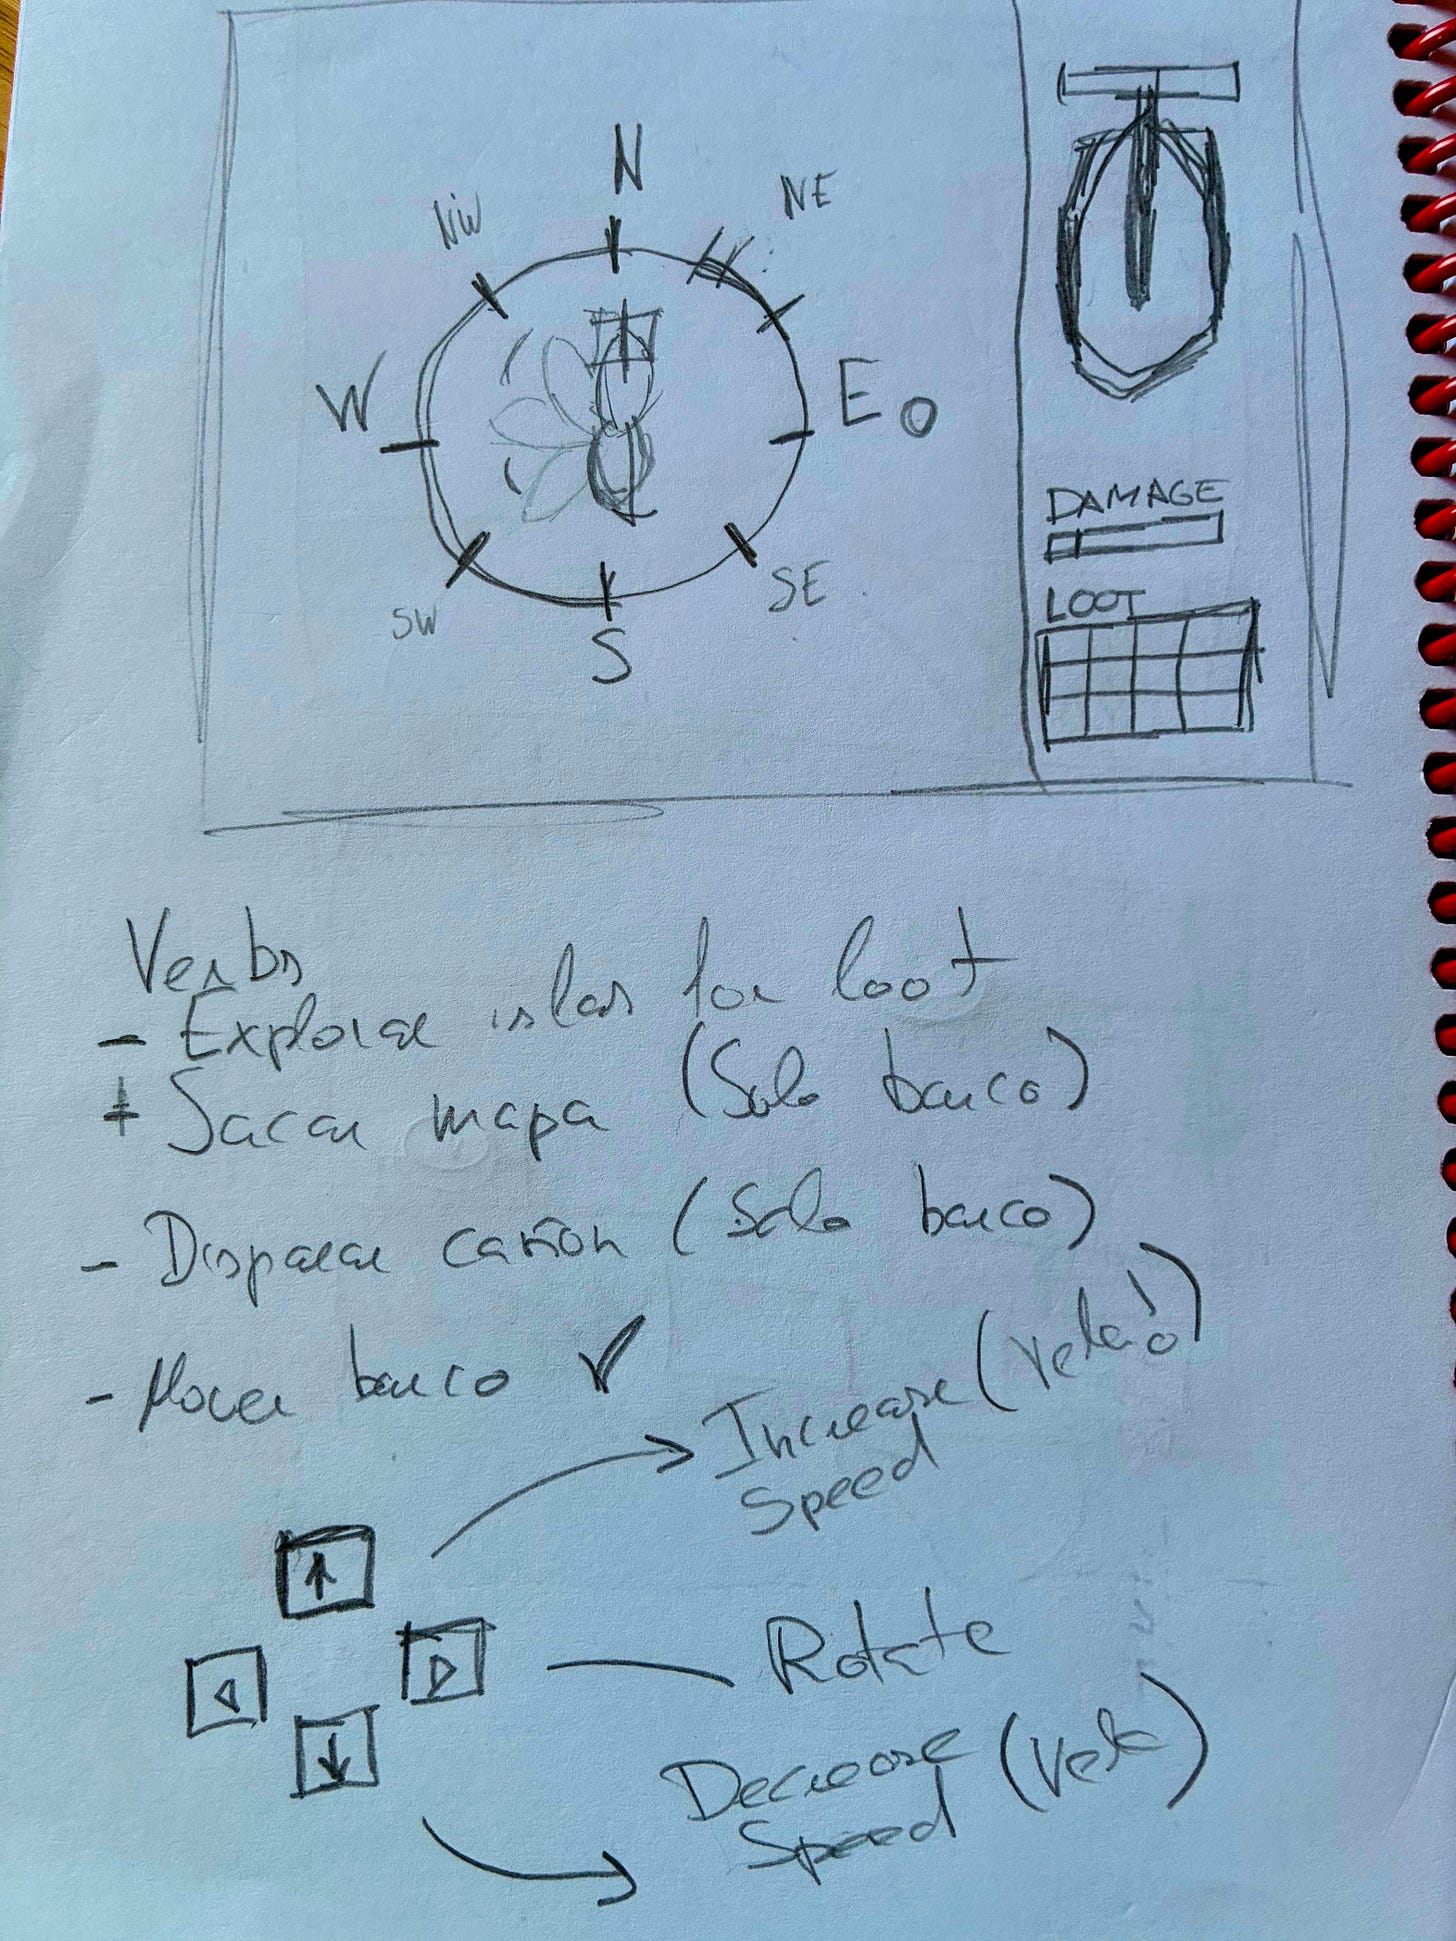 N
NW
NE
W
E O
SW
SE
S
DAMAGE
LOOT
Verbs
- Explorar islas for loot
+ Sacar mapa (Solo barco)
- Disparar cañón (Solo barco)
- Mover barco ✓
Increase
Speed
↑
◁ ▷
↓
Rotate
Decrease (Vela)
Speed